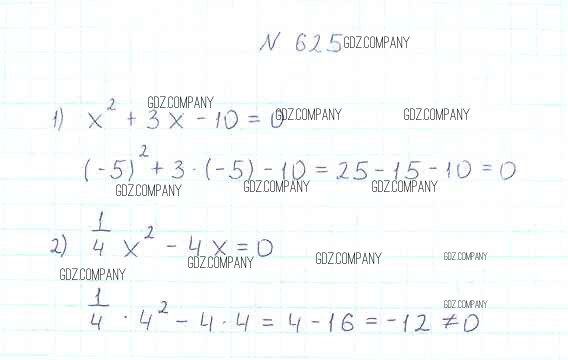 N 625 GDZ.COMPANY
GDZ.COMPANY
1) x² + 3x - 10 = 0 GDZ.COMPANY GDZ.COMPANY
(-5)² + 3 · (-5) - 10 = 25 - 15 - 10 = 0
GDZ.COMPANY GDZ.COMPANY GDZ.COMPANY
2) 1/4 x² - 4x = 0
GDZ.COMPANY GDZ.COMPANY GDZ.COMPANY
GDZ.COMPANY
1/4 · 4² - 4 · 4 = 4 - 16 = -12 ≠ 0
GDZ.COMPANY